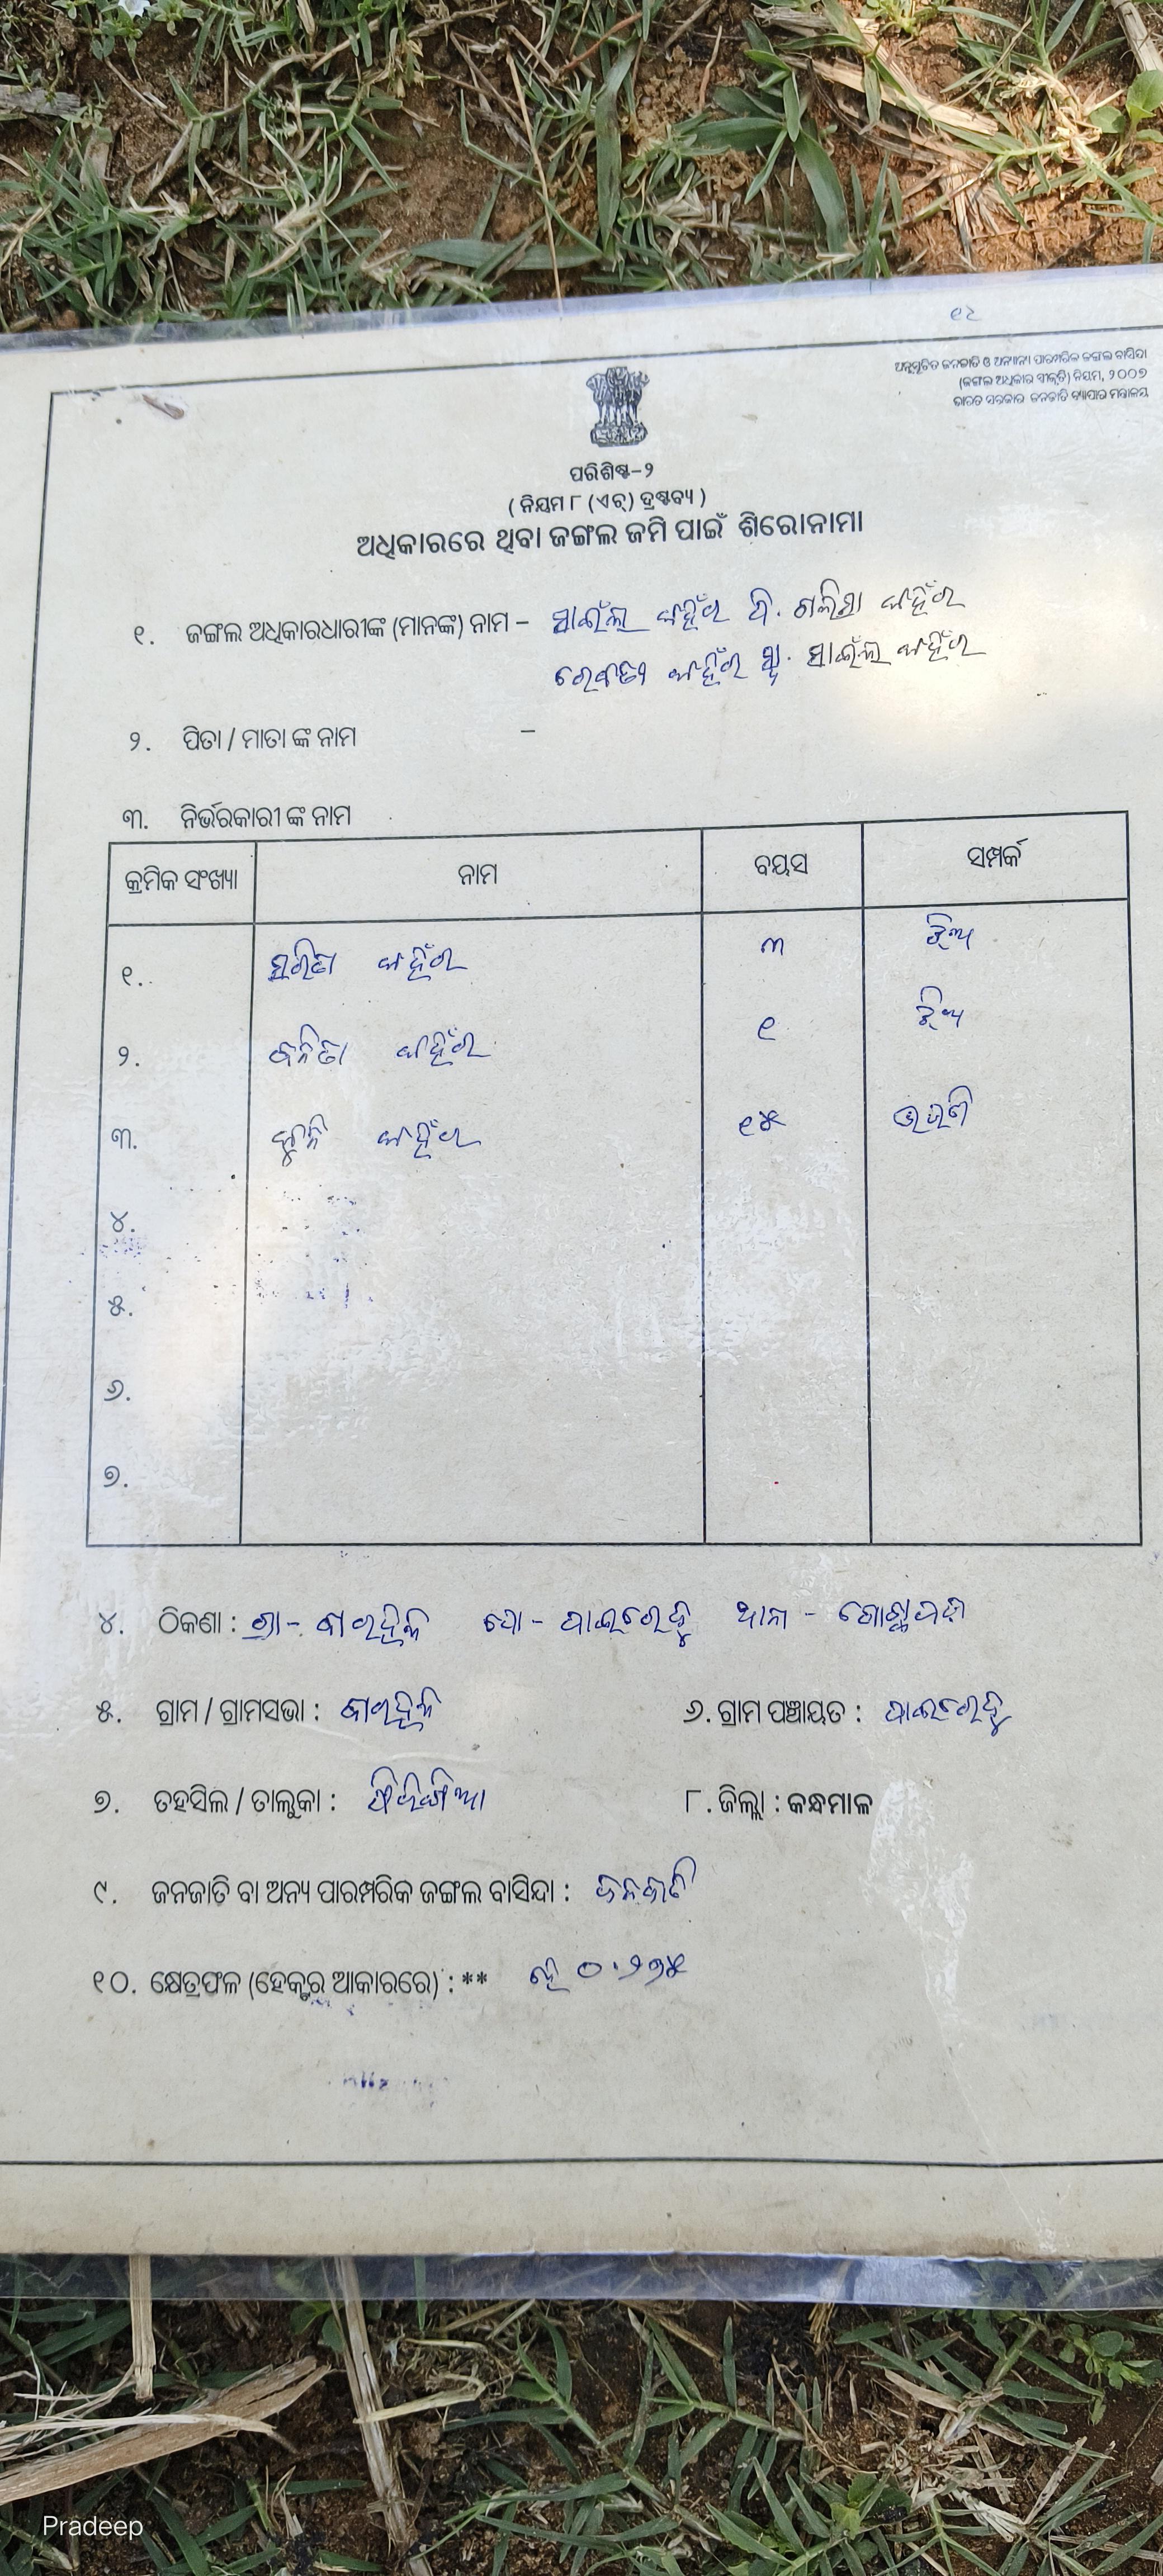 ୧୨
ଅନୁସୂଚିତ ଜନଜାତି ଓ ଅନ୍ୟାନ୍ୟ ପାରମ୍ପରିକ ଜଙ୍ଗଲ ବାସିନ୍ଦା
(ଜଙ୍ଗଲ ଅଧିକାର ସ୍ୱୀକୃତି) ନିୟମ, ୨୦୦୭
ଭାରତ ସରକାର ଜନଜାତି ବ୍ୟାପାର ମନ୍ତ୍ରାଳୟ
ପରିଶିଷ୍ଟ-୨
( ନିୟମ ୮ (ଏଚ୍) ଦ୍ରଷ୍ଟବ୍ୟ )
ଅଧିକାରରେ ଥିବା ଜଙ୍ଗଲ ଜମି ପାଇଁ ଶିରୋନାମା
୧. ଜଙ୍ଗଲ ଅଧିକାରଧାରୀଙ୍କ (ମାନଙ୍କ) ନାମ – କହଁର ପି. କହଁର
କହଁର ସ୍ୱା. କହଁର
୨. ପିତା / ମାତା ଙ୍କ ନାମ –
୩. ନିର୍ଭରକାରୀ ଙ୍କ ନାମ
କ୍ରମିକ ସଂଖ୍ୟା ନାମ ବୟସ ସମ୍ପର୍କ
୧. ସରିତା କହଁର ୩ ଝିଅ
୨. ବନିତା କହଁର ୧ ଝିଅ
୩. କହଁର ୧୫ ଭଉଣୀ
୪.
୫.
୬.
୭.
୪. ଠିକଣା : ଗ୍ରା - ପୋ - ଥାନା -
୫. ଗ୍ରାମ / ଗ୍ରାମସଭା : ୬. ଗ୍ରାମ ପଞ୍ଚାୟତ :
୭. ତହସିଲ / ତାଲୁକା : ଫିରିଙ୍ଗିଆ ୮. ଜିଲ୍ଲା : କନ୍ଧମାଳ
୯. ଜନଜାତି ବା ଅନ୍ୟ ପାରମ୍ପରିକ ଜଙ୍ଗଲ ବାସିନ୍ଦା : ଜନଜାତି
୧୦. କ୍ଷେତ୍ରଫଳ (ହେକ୍ଟର ଆକାରରେ) : ** ହେ ୦.୨୭୫
Pradeep